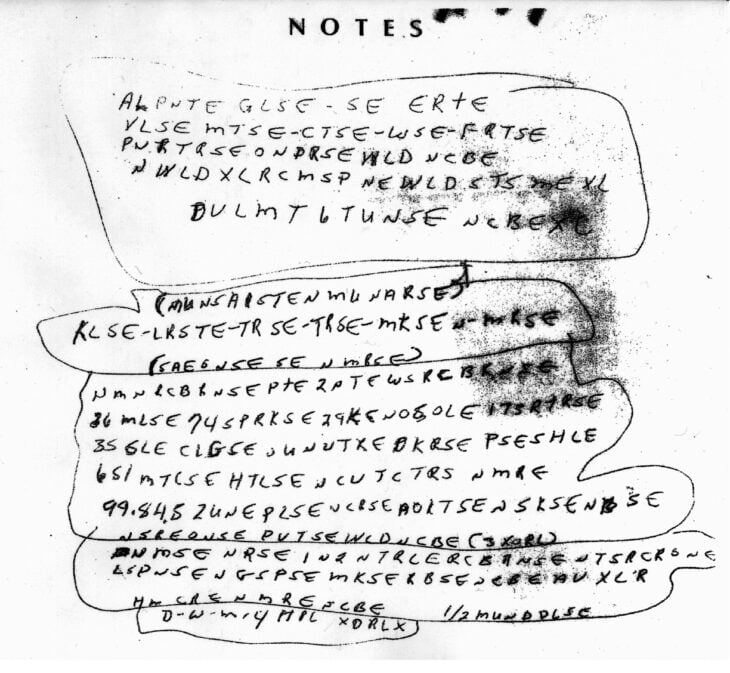 NOTES
ALPNTE GLSE-SE ERTE
VLSE MTSE-CTSE-WSE-FRTSE
PNRTRSEONDRSEWLD NCBE
NWLDXLRCMSP NEWLDSTS MEXL
DULMT6TUNSE NCBEXL
(MUNSAISTENMUNARSE)
KLSE-LRSTE-TRSE-TRSE-MKSEN-MRSE
(SAEGNSE SE NMRSE)
NMNRCBRNSEPTE2PTEWSRCBRNSE
36MLSE 74SPRKSE29KENOSOLE 173RTRSE
35 GLE CLGSE UNUTXE DKRSE PSESHLE
651 MTCSE HTLSE NCUTCTRS NMRE
99.84.5 ZUNEPLSE NCRSEAOLTSENSKSENBSE
NSREONSE PUTSEWLD NCBE (3XORL)
NMSE NRSE IN2NTRLERCBRNSE NTSRCRONE
LSPNSENGSPSE MKSERBSENCBEAUXLR
HMCRENMRE NCBE 1/2MUNDDLSE
D-W-M-4 MPL XDRLX